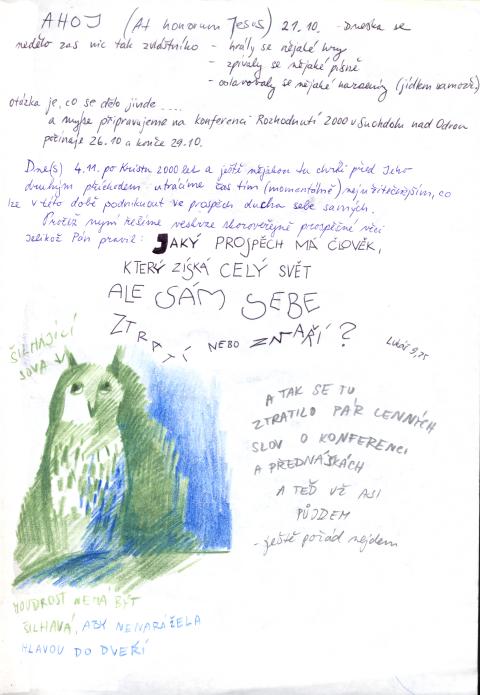 AHOJ (At honorum Jesus) 21.10. - Dneska se
nedělo zas nic tak zvláštního - hrály se nějaké hry
- zpívaly se nějaké písně
- oslavovaly se nějaké narozeniny (jídlem samozř.)
otázka je, co se dělo jinde ....
a my se připravujeme na konferenci Rozhodnutí 2000 v Suchdolu nad Odrou
počínaje 26.10 a konče 29.10.
Dne(s) 4.11. po Kristu 2000 let a ještě nějakou tu chvíli před Jeho
druhým příchodem utrácíme čas tím (momentálně) nejužitečnějším, co
lze v této době podniknout ve prospěch ducha sebe samých.
Protož nyní řešíme veskrze skorověrně prospěšné věci
jelikož Pán pravil: JAKÝ PROSPĚCH MÁ ČLOVĚK,
KTERÝ ZÍSKÁ CELÝ SVĚT
ALE SÁM SEBE
ZTRATÍ NEBO ZMAŘÍ?
Lukáš 9,25
ŠILHAJÍCÍ
SOVA
A TAK SE TU
ZTRATILO PÁR CENNÝCH
SLOV O KONFERENCI
A PŘEDNÁŠKÁCH
A TEĎ UŽ ASI
PŮJDEM
- ještě pořád nejdem
MOUDROST NEMÁ BÝT
ŠILHAVÁ, ABY NENARÁŽELA
HLAVOU DO DVEŘÍ